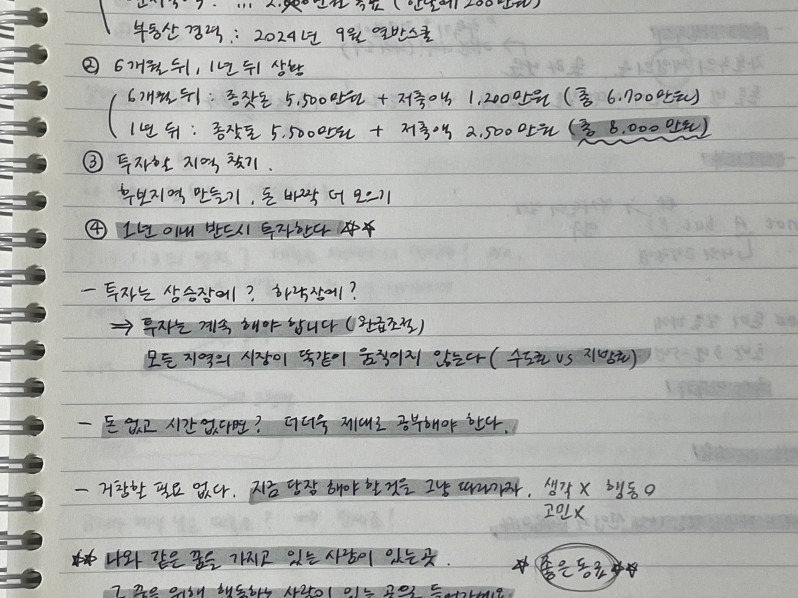 ... 2,000만원 목표 (한달에 200만원)
부동산 경력 : 2024년 9월 열반스쿨
② 6개월 뒤, 1년 뒤 상황
6개월 뒤 : 종잣돈 5,500만원 + 저축액 1,200만원 (총 6,700만원)
1년 뒤 : 종잣돈 5,500만원 + 저축액 2,500만원 (총 8,000만원)
③ 투자할 지역 찾기.
후보지역 만들기, 돈 바짝 더 모으기
④ 1년 이내 반드시 투자한다 ☆☆
- 투자는 상승장에? 하락장에?
⇒ 투자는 계속 해야 합니다 (완급조절)
모든 지역의 시장이 똑같이 움직이지 않는다 (수도권 vs 지방권)
- 돈 없고 시간 없다면? 더더욱 제대로 공부해야 한다.
- 거창할 필요 없다. 지금 당장 해야 할 것을 그냥 따라가자. 생각 X 행동 O
고민 X
☆☆ 나와 같은 꿈을 가지고 있는 사람이 있는 곳. ☆ 좋은 동료 ☆☆
그 꿈을 위해 행동하는 사람이 있는 곳으로 들어가세요